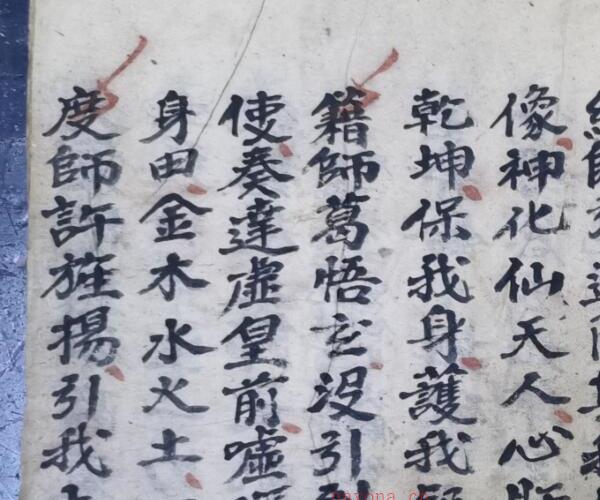 像神化仙天人心
乾坤保我身護我
籍師葛悟玄没引
使奏達虛皇前噓
身田金木水火土
度師許旌揚引我